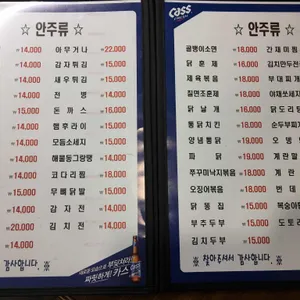 ☆ 안주류 ☆
₩14,000 아무거나 ₩22,000
₩14,000 감자튀김 ₩15,000
₩14,000 새우튀김 ₩15,000
₩14,000 전병 ₩14,000
₩15,000 돈까스 ₩16,000
₩14,000 햄후라이 ₩15,000
₩14,000 모듬소세지 ₩15,000
₩14,000 해물동그랑땡 ₩15,000
₩14,000 코다리찜 ₩18,000
₩15,000 무뼈닭발 ₩15,000
₩14,000 감자전 ₩14,000
₩20,000 김치전 ₩14,000
₩14,000
감사합니다.
부딪쳐라
짜릿하게! 카스
Cass
☆ 안주류 ☆
골뱅이소면 ₩18,000 간재미찜
닭훈제 ₩16,000 김치만두전
제육볶음 ₩18,000 부대찌개
칠면조훈제 ₩18,000 야채쏘세지
닭날개 ₩16,000 닭도리
통닭치킨 ₩18,000 순두부찌
양념통닭 ₩19,000 오뎅
파닭 ₩19,000 계란말
쭈꾸미낙지볶음 ₩18,000 계란
오징어볶음 ₩18,000 번데
닭똥집 ₩15,000 복숭아
부추두부 ₩15,000 도토리
김치두부 ₩15,000
☆ 찾아주셔서 감사합니다.